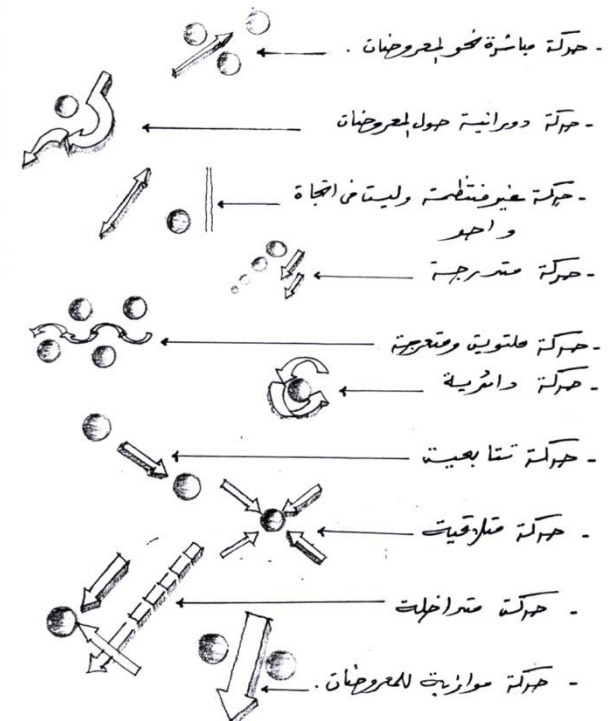 - حركة مباشرة نحو المعروضات .
- حركة دورانية حول المعروضات
- حركة غير منتظمة وليست فى اتجاة
واحد
- حركة متدرجة
- حركة ملتوية ومتعرجة
- حركة دائرية
- حركة تتابعية
- حركة متلاقية
- حركة متداخلة
- حركة موازية للمعروضات .